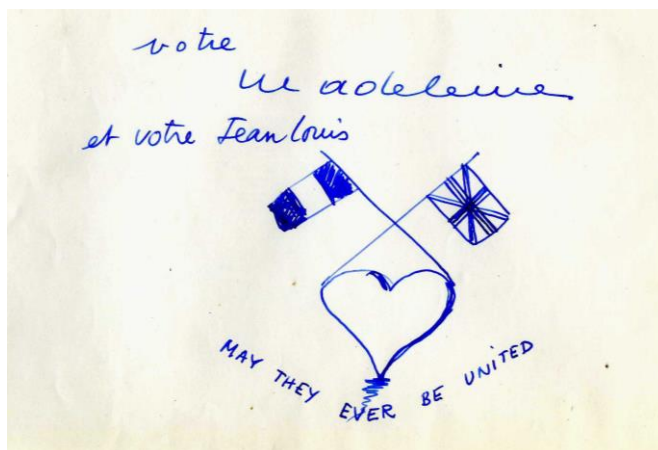 votre
Madeleine
et votre Jean Louis
MAY THEY EVER BE UNITED